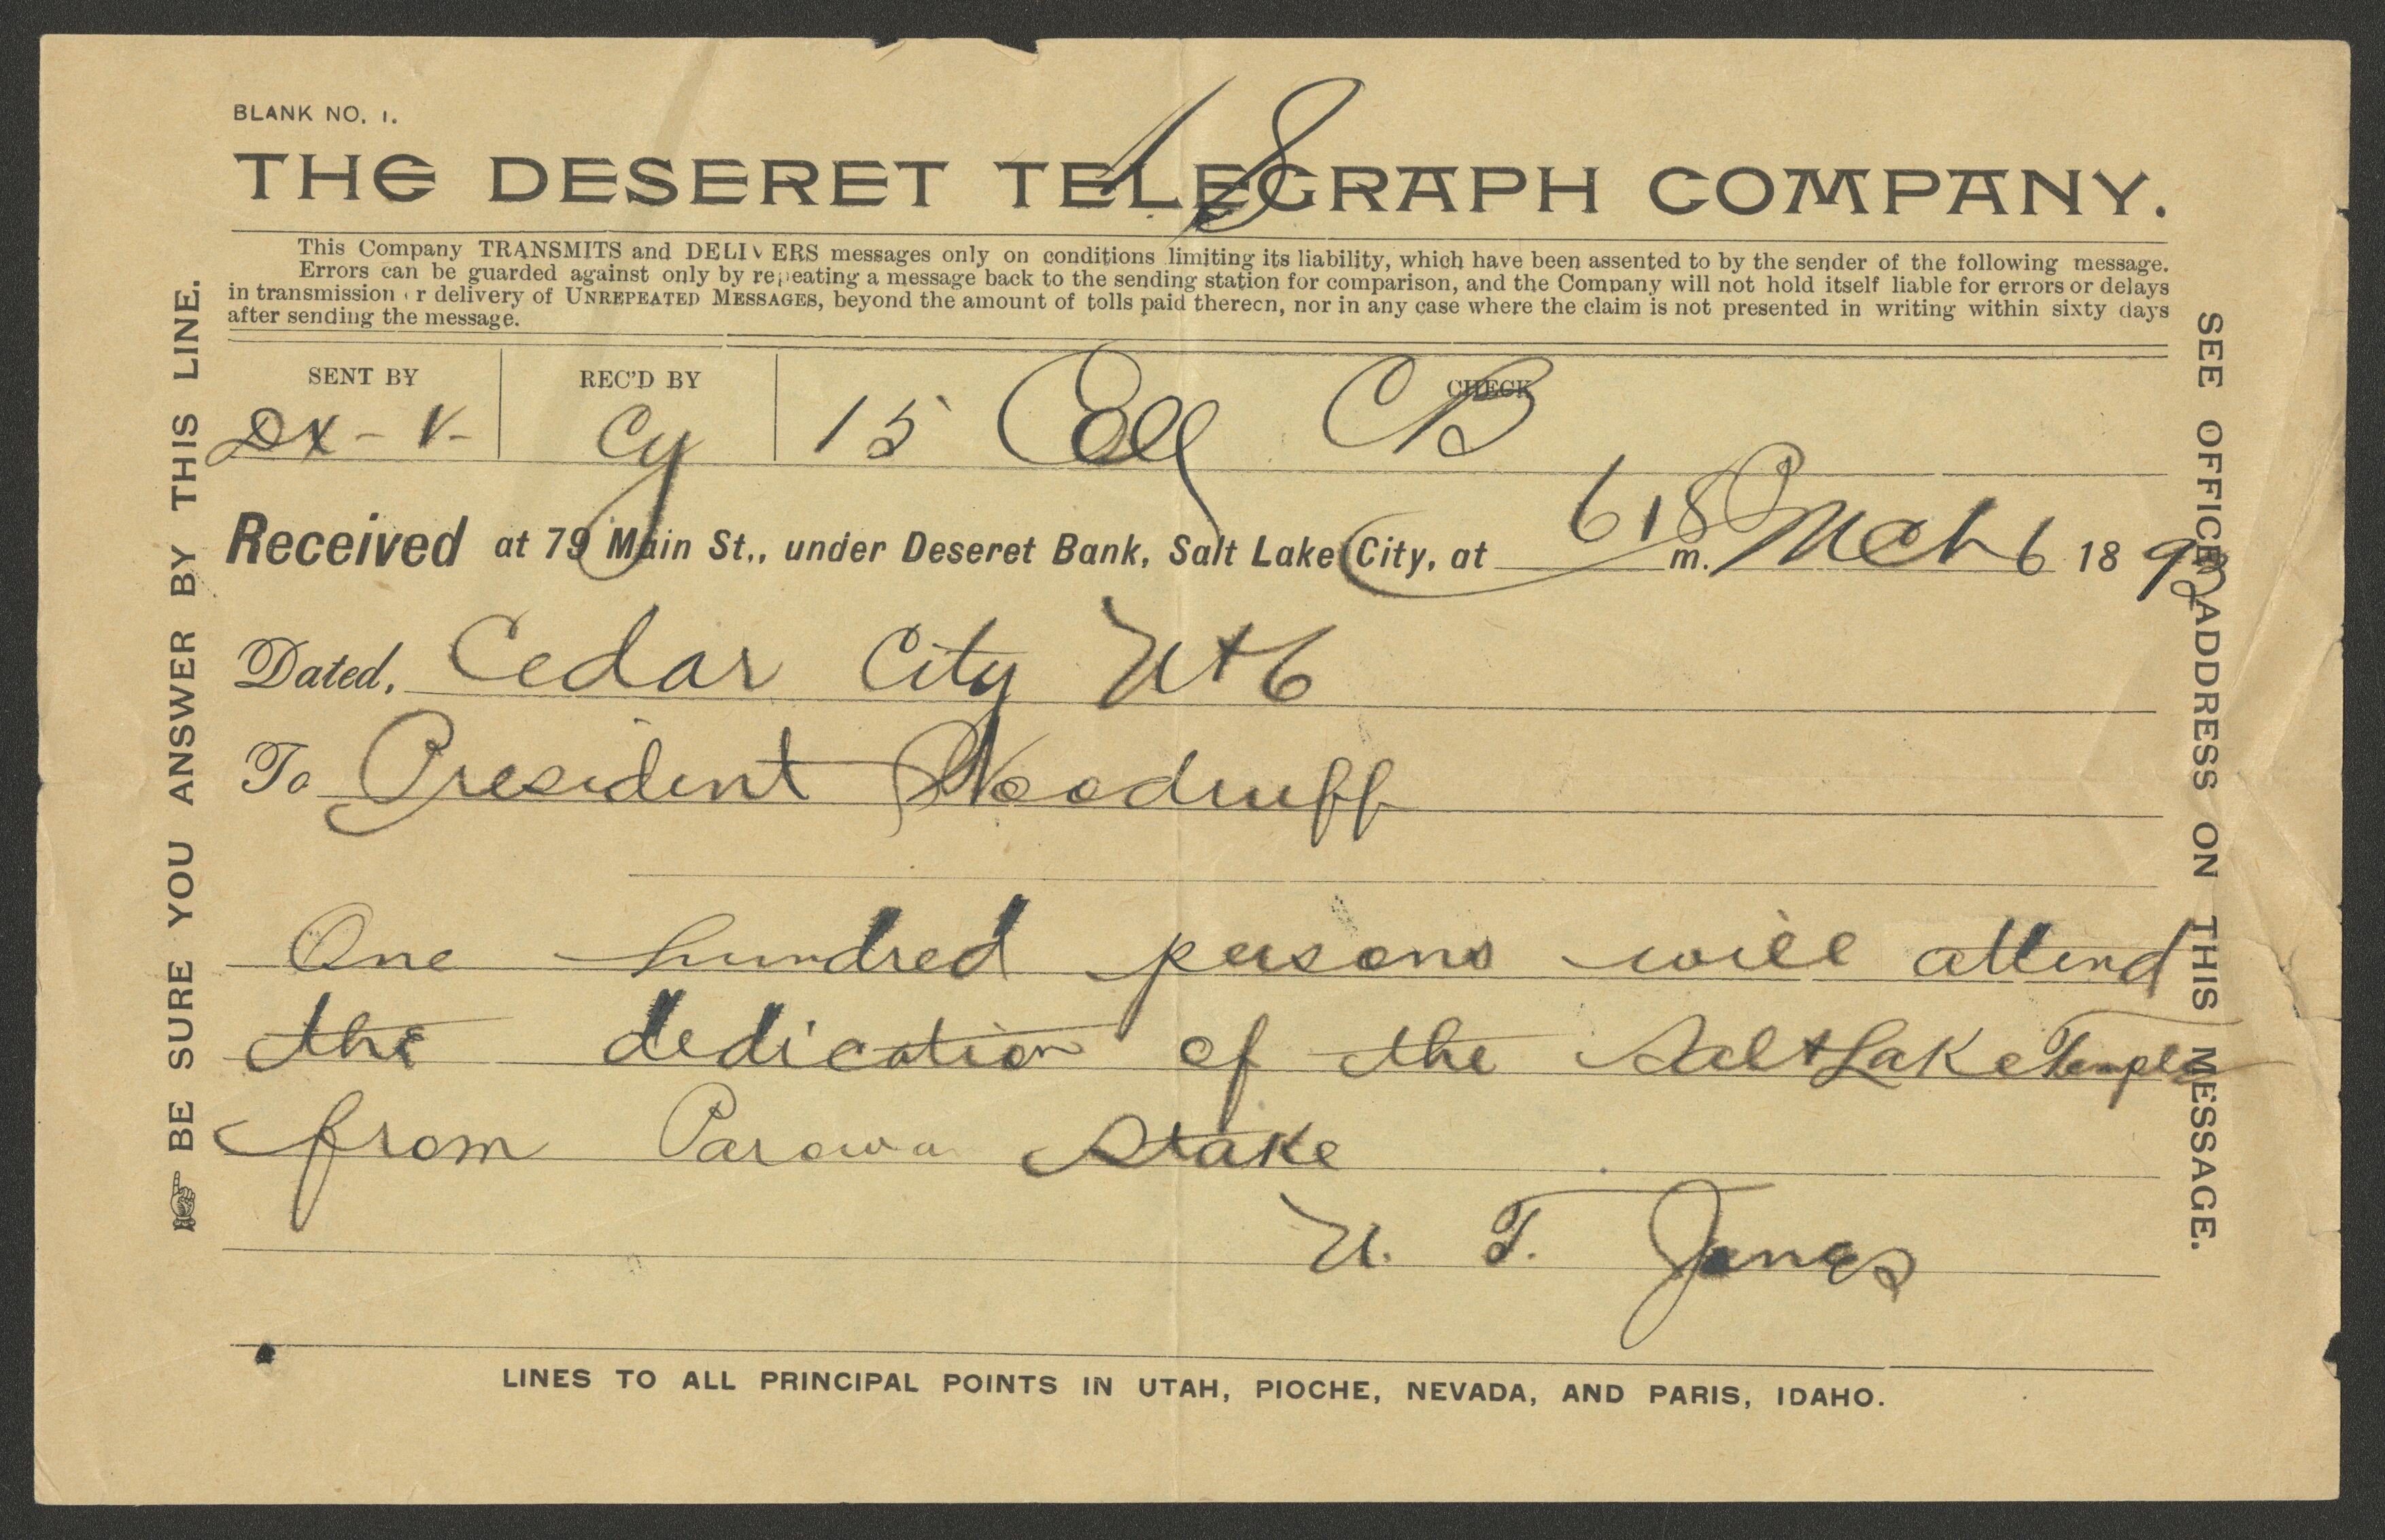 18
BLANK NO. 1.
THE DESERET TELEGRAPH COMPANY.
This Company TRANSMITS and DELIVERS messages only on conditions limiting its liability, which have been assented to by the sender of the following message.
Errors can be guarded against only by repeating a message back to the sending station for comparison, and the Company will not hold itself liable for errors or delays
in transmission or delivery of UNREPEATED MESSAGES, beyond the amount of tolls paid therecn, nor in any case where the claim is not presented in writing within sixty days
after sending the message.
SENT BY REC'D BY CHECK
DX - V- Cy 15 Coll CB
Received at 79 Main St., under Deseret Bank, Salt Lake City, at 618 P m. Mch 6 1893
Dated, Cedar City Ut 6
To President Woodruff
One hundred persons will attend
the dedication of the Salt Lake Temple
from Parowan Stake
U. T. Jones
LINES TO ALL PRINCIPAL POINTS IN UTAH, PIOCHE, NEVADA, AND PARIS, IDAHO.
BE SURE YOU ANSWER BY THIS LINE.
SEE OFFICE ADDRESS ON THIS MESSAGE.